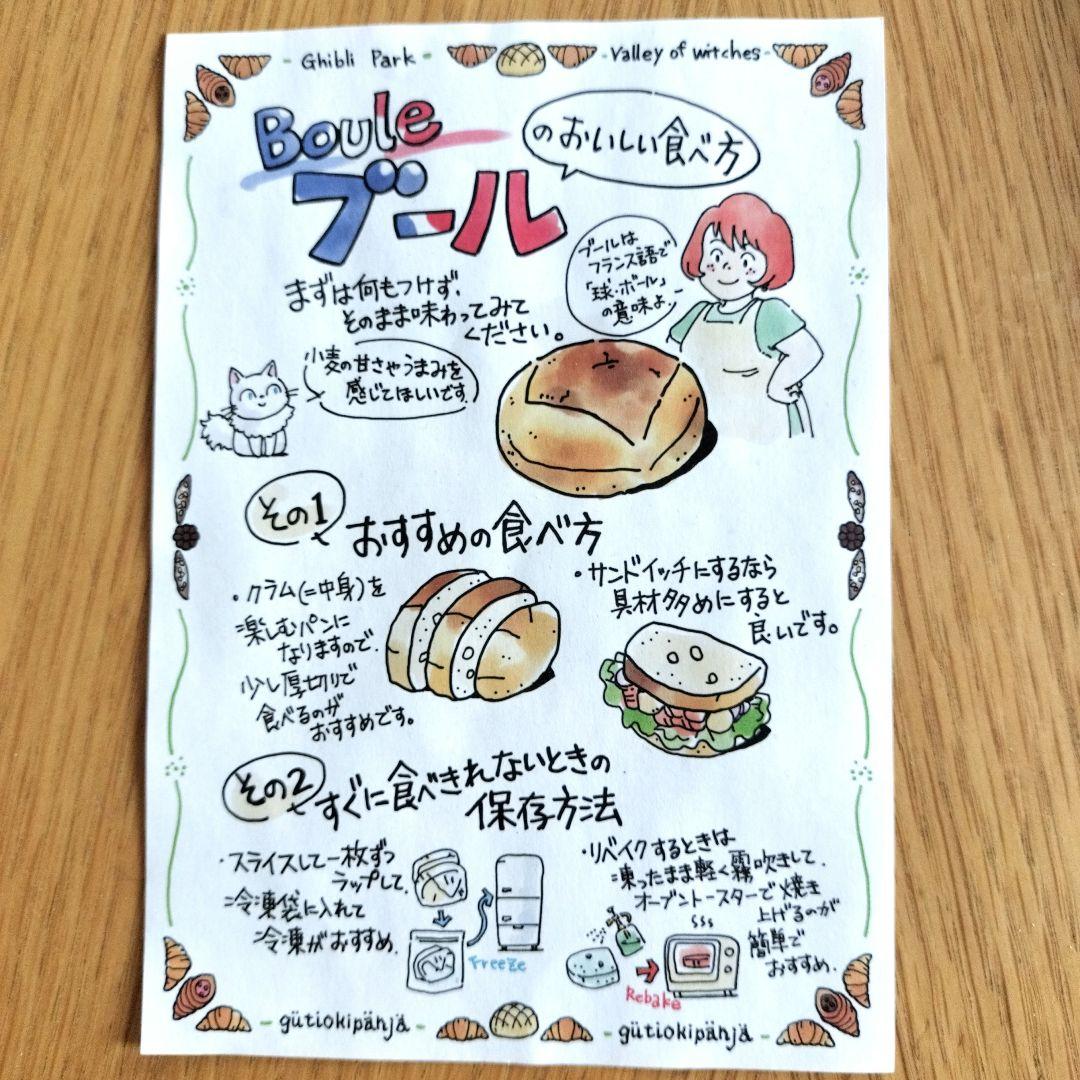 Ghibli Park
Valley of witches
Boule
ブール
のおいしい食べ方
ブールは
フランス語で
「球・ボール」
の意味よ
まずは何もつけず、
そのまま味わってみて
ください。
小麦の甘さやうまみを
感じてほしいです。
その1
おすすめの食べ方
・クラム(=中身)を
楽しむパンに
なりますので、
少し厚切りで
食べるのが
おすすめです。
・サンドイッチにするなら
具材多めにすると
良いです。
その2
すぐに食べきれないときの
保存方法
・スライスして一枚ずつ
ラップして、
冷凍袋に入れて
冷凍がおすすめ。
Freeze
・リベイクするときは
凍ったまま軽く霧吹きして、
オーブントースターで焼き
上げるのが
簡単で
おすすめ。
Rebake
gütiokipänjä
gütiokipänjä